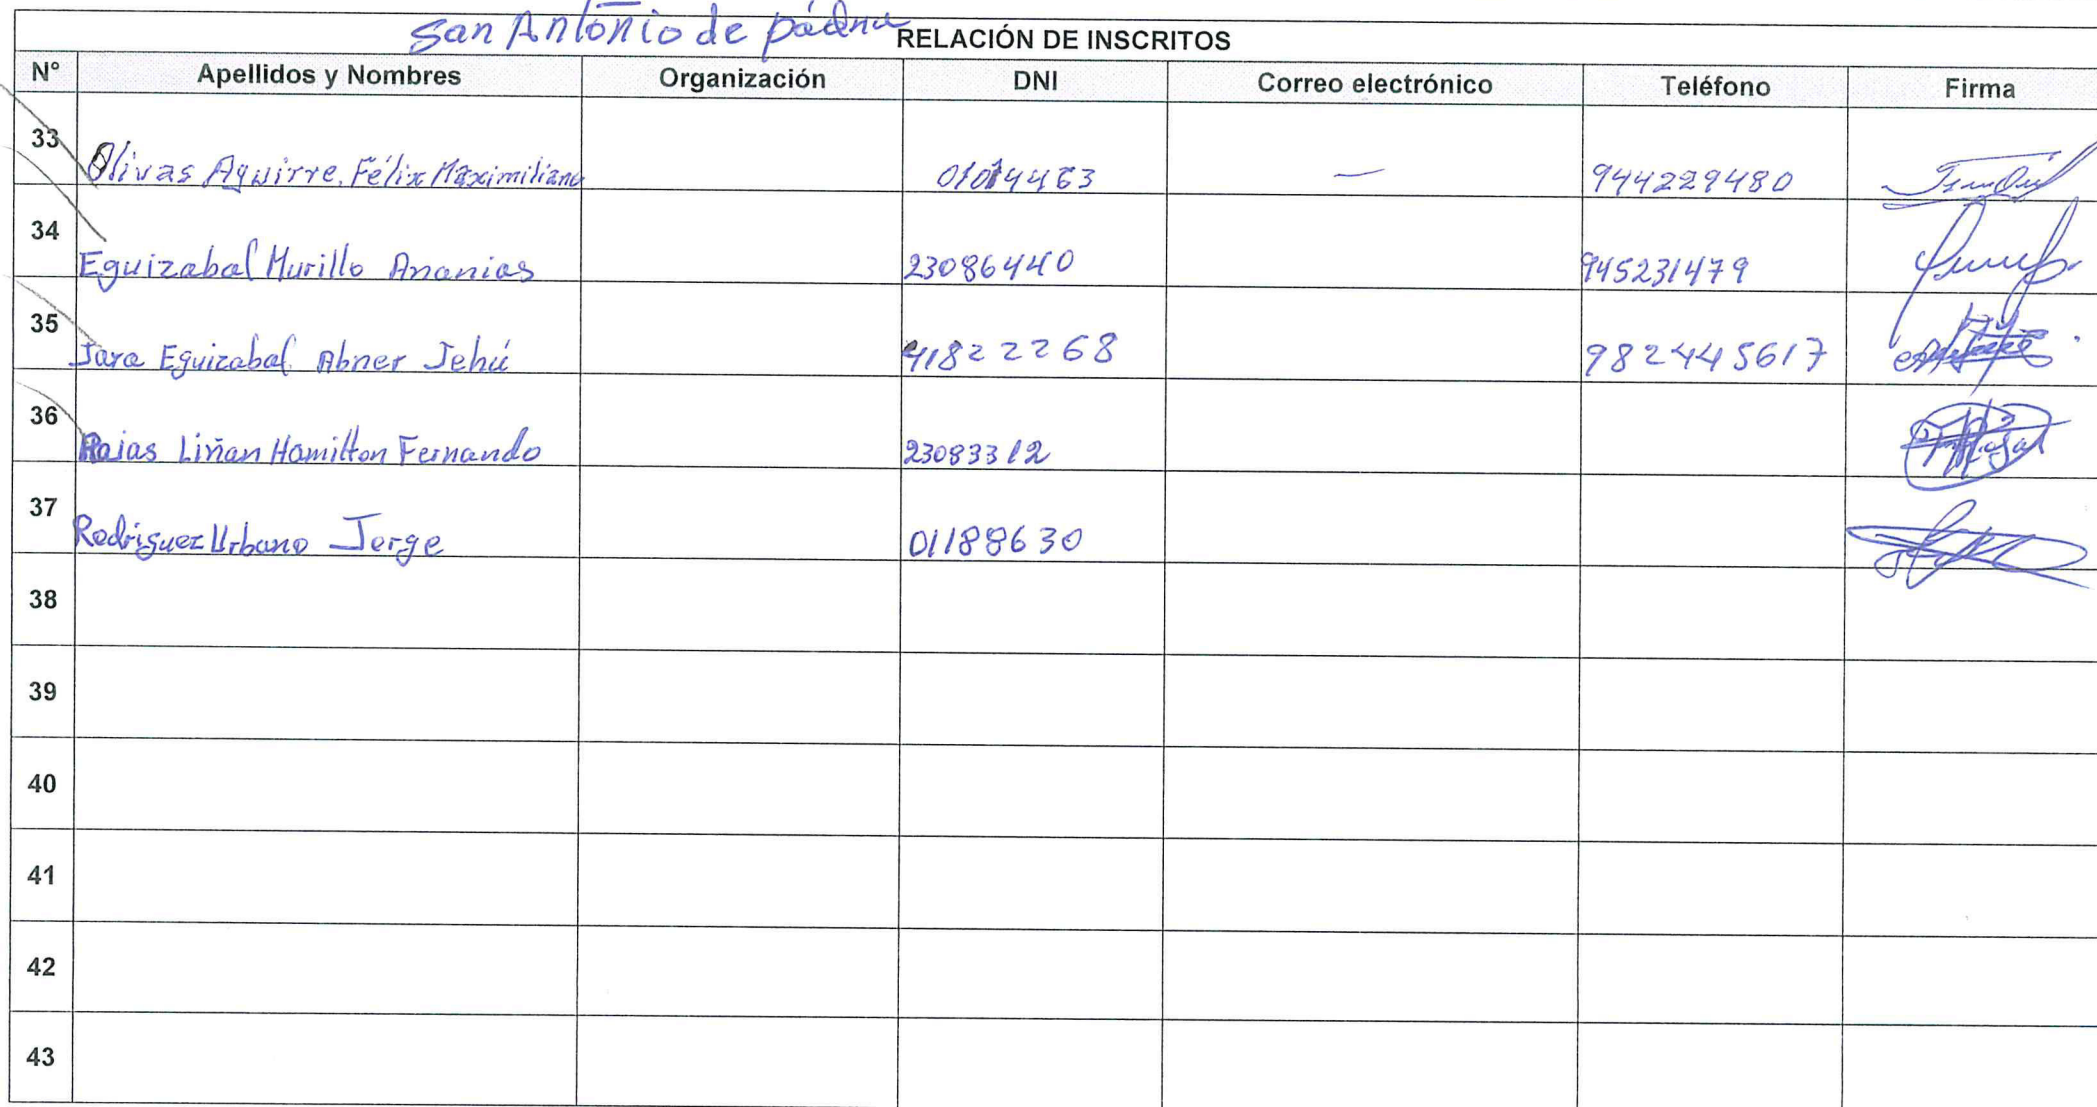 San Antonio de pádua
RELACIÓN DE INSCRITOS
N° Apellidos y Nombres Organización DNI Correo electrónico Teléfono Firma
33 Olivas Aguirre, Félix Maximiliano 01014463 — 944229480
34 Eguizabal Murillo Ananias 23086440 945231479
35 Jara Eguizabal Abner Jehú 41822268 982445617
36 Rojas Liñan Hamilton Fernando 23083312
37 Rodriguez Urbano Jorge 01188630
38
39
40
41
42
43